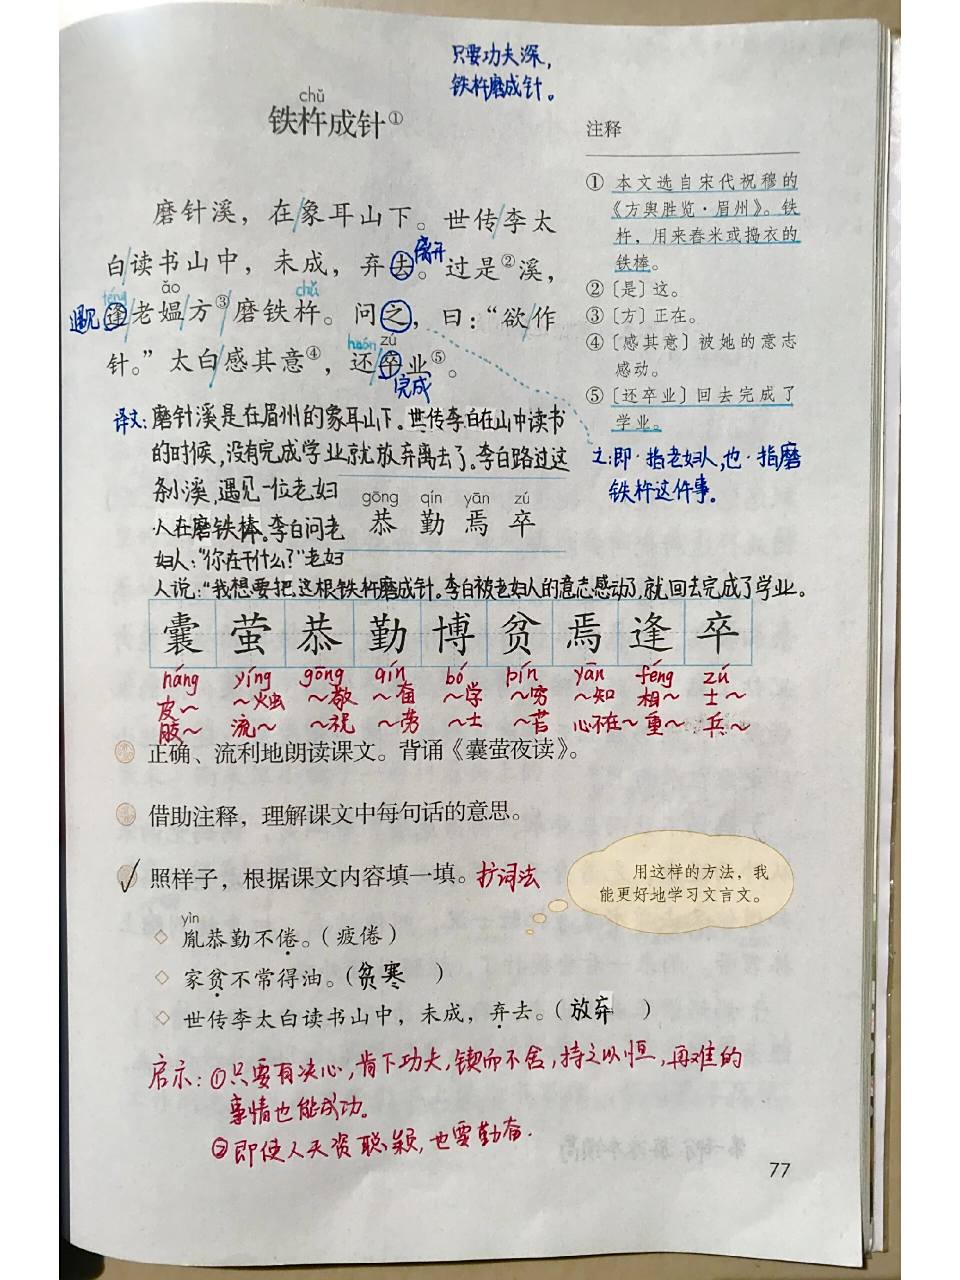 只要功夫深，
铁杵磨成针。
chǔ
铁杵成针①
磨针溪，在/象耳山下。世传/李太
白/读书山中，未成，弃去。过是②溪，
离开
ǎo
féng
chǔ
遇见
逢/老媪/方③/磨铁杵。问之，曰：“欲/作
针。”太白/感其意④，还/卒业⑤。
huán
zú
完成
注释
① 本文选自宋代祝穆的
《方舆胜览·眉州》。铁
杵，用来舂米或捣衣的
铁棒。
②〔是〕这。
③〔方〕正在。
④〔感其意〕被她的意志
感动。
⑤〔还卒业〕回去完成了
学业。
之:即·指老妇人,也·指磨
铁杵这件事。
译文:磨针溪是在眉州的象耳山下。世传李白在山中读书
的时候,没有完成学业就放弃离去了。李白路过这
条小溪,遇见一位老妇
人在磨铁棒。李白问老
妇人:“你在干什么?”老妇
人说:“我想要把这根铁杵磨成针。李白被老妇人的意志感动了,就回去完成了学业。
gōng qín yān zú
恭 勤 焉 卒
囊 萤 恭 勤 博 贫 焉 逢 卒
náng yíng gōng qín bó pín yān féng zú
皮～ ～火虫 ～敬 ～奋 ～学 ～穷 ～知 相～ 士～
胶～ 流～ ～祝 ～劳 ～士 ～苦 心不在～ 重～ 兵～
正确、流利地朗读课文。背诵《囊萤夜读》。
借助注释，理解课文中每句话的意思。
照样子，根据课文内容填一填。扩词法
用这样的方法，我
能更好地学习文言文。
yìn
◇ 胤恭勤不倦。（疲倦）
◇ 家贫不常得油。（贫寒）
◇ 世传李太白读书山中，未成，弃去。（放弃）
启示:①只要有决心,肯下功夫,锲而不舍,持之以恒,再难的
事情也能成功。
②即使人天资聪颖,也要勤奋.
77